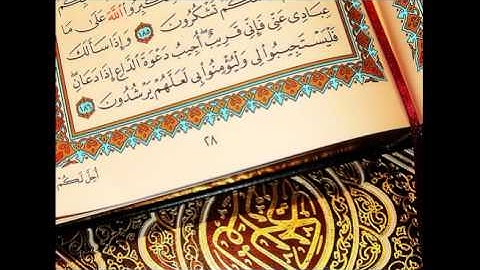 اللَّهَ عَلَىٰ مَا
كُمْ تَشْكُرُونَ ١٨٥ وَإِذَا سَأَلَكَ
عِبَادِي عَنِّي فَإِنِّي قَرِيبٌ أُجِيبُ دَعْوَةَ الدَّاعِ إِذَا دَعَانِ
فَلْيَسْتَجِيبُوا لِي وَلْيُؤْمِنُوا بِي لَعَلَّهُمْ يَرْشُدُونَ ١٨٦
٢٨
أُحِلَّ لَكُمْ